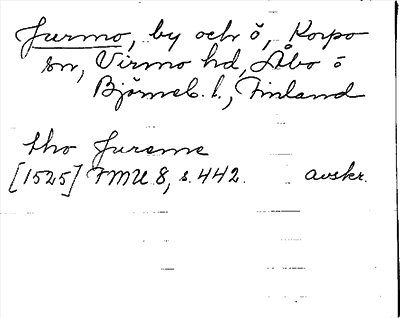 Jurmo, by och ö, Korpo
sn, Virmo hd, Åbo o
Björneb. l., Finland
tho Jureme
[1525] FMU 8, s. 442. avskr.